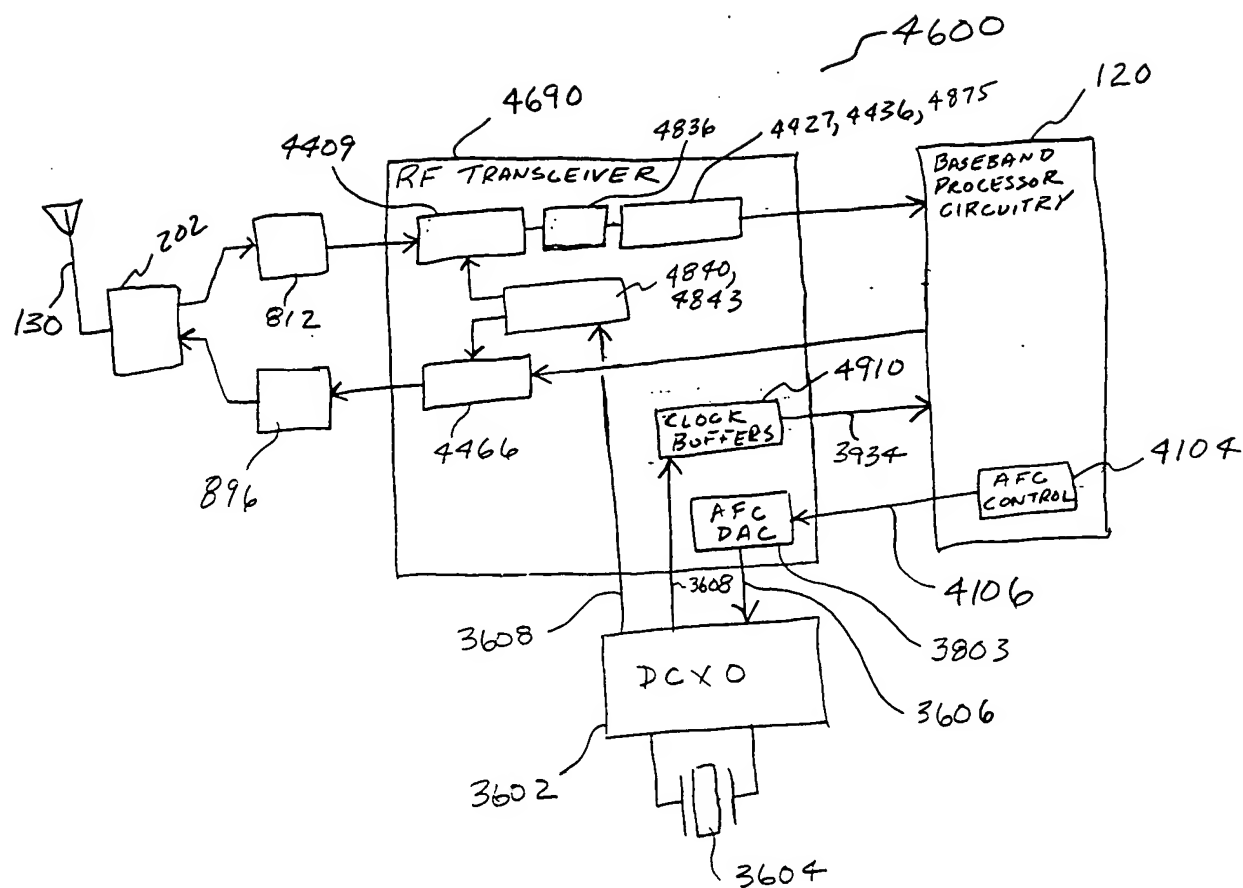 4600
4690
120
4409
4836
4427, 4436, 4875
RF TRANSCEIVER
BASEBAND
PROCESSOR
CIRCUITRY
202
4840,
4843
130
812
4910
CLOCK
BUFFERS
3934
4466
896
4104
AFC
CONTROL
AFC
DAC
3608
4106
3608
3803
DCXO
3606
3602
3604